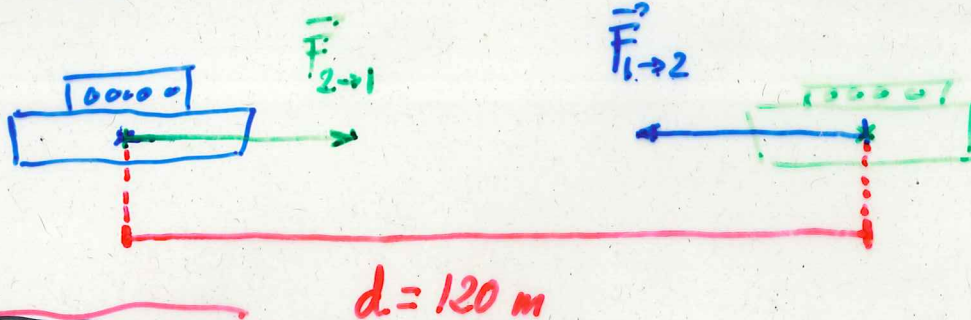 F⃗₂→₁
F⃗₁→₂
d = 120 m